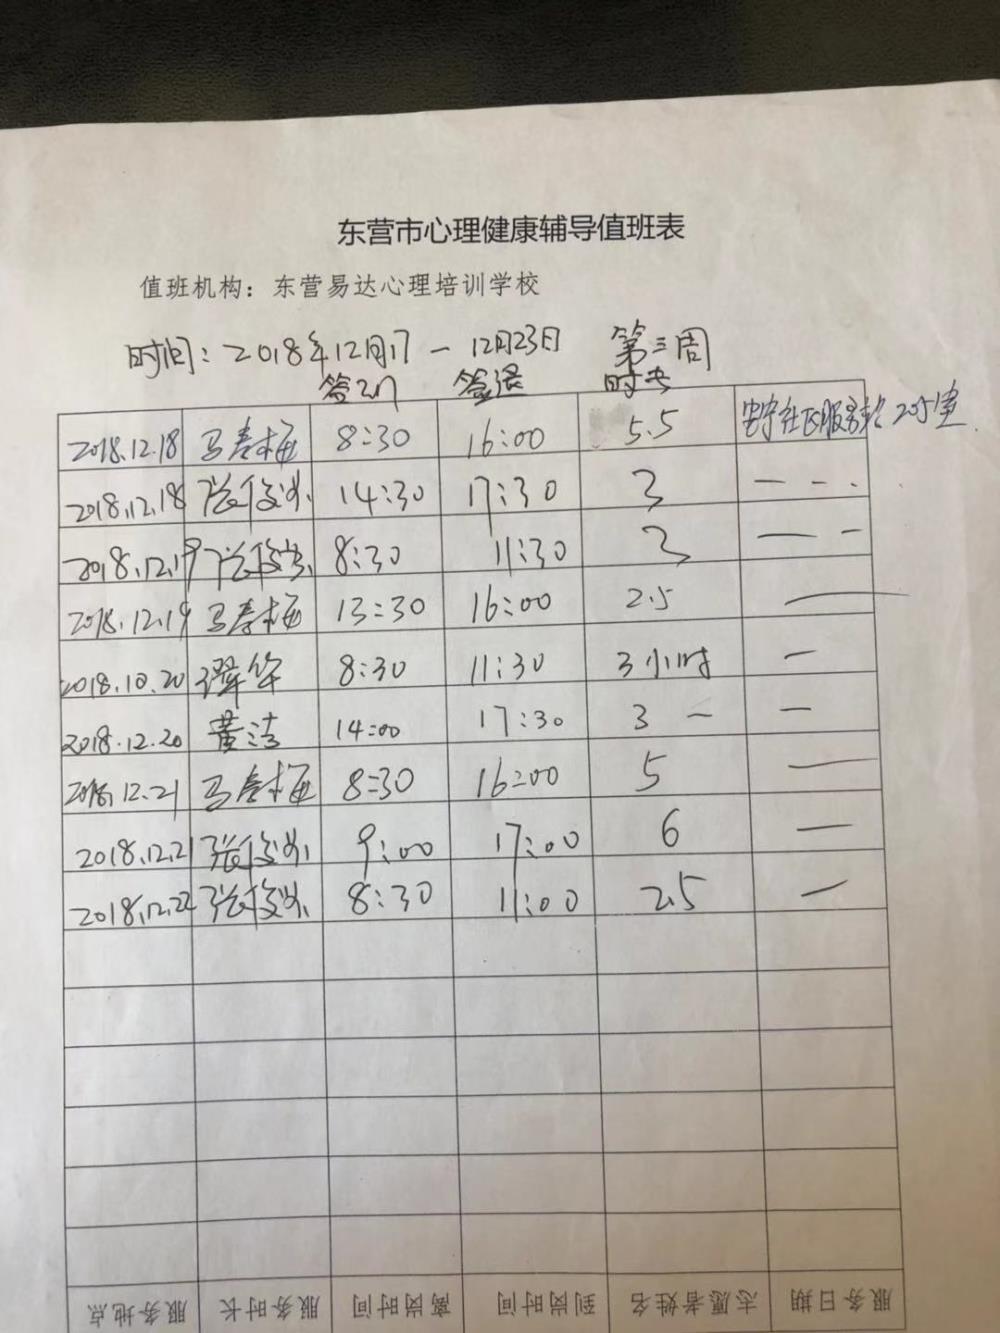 东营市心理健康辅导值班表
值班机构：东营易达心理培训学校
时间：2018年12月17 — 12月23日 第三周
签到 签退 时长
2018.12.18 马春梅 8:30 16:00 5.5 社区服务 205室
2018.12.18 张俊 14:30 17:30 3 — - .
2018.12.19 张俊 8:30 11:30 3 — -
2018.12.19 马春梅 13:30 16:00 2.5 —
2018.10.20 谭华 8:30 11:30 3小时 —
2018.12.20 黄洁 14:00 17:30 3 — —
2018.12.21 马春梅 8:30 16:00 5 —
2018.12.21 张俊 9:00 17:00 6 —
2018.12.22 张俊 8:30 11:00 2.5 —
服务地点 服务时长 离岗时间 到岗时间 志愿者姓名 服务日期